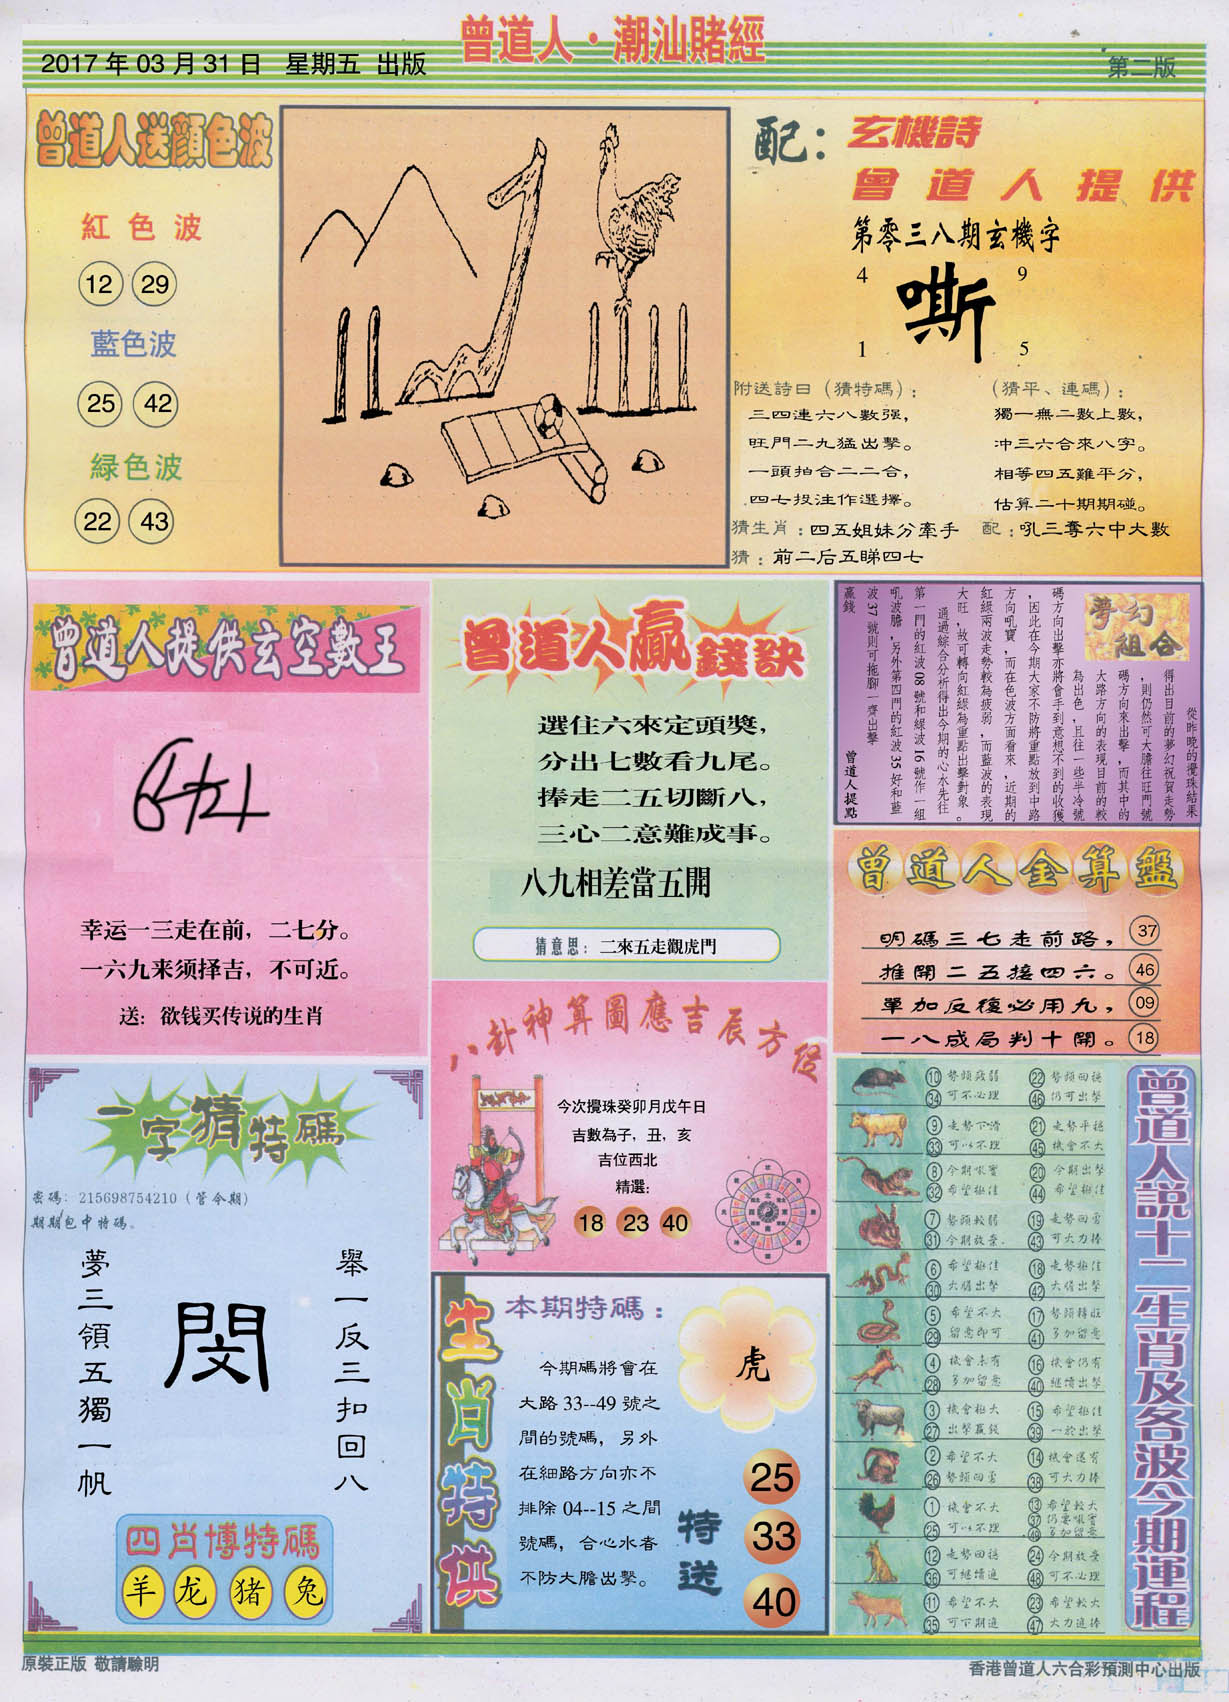 曾道人·潮汕賭經
2017 年 03 月 31 日 星期五 出版
第二版
曾道人送顏色波
紅色波
12 29
藍色波
25 42
緑色波
22 43
配：玄機詩
曾道人提供
第零三八期玄機字
4 9
嘶
1 5
附送詩曰（猜特碼）：
三四連六八數强，
旺門二九猛出擊。
一頭拍合二二合，
四七投注作選擇。
（猜平、連碼）：
獨一無二數上數，
冲三六合來八字。
相等四五難平分，
估算二十期期碰。
猜生肖：四五姐妹分牽手
配：吼三奪六中大數
猜：前二后五睇四七
曾道人提供玄空數王
幸运一三走在前，二七分。
一六九来须择吉，不可近。
送：欲钱买传说的生肖
曾道人贏錢訣
選住六來定頭獎，
分出七數看九尾。
捧走二五切斷八，
三心二意難成事。
八九相差當五開
猜意思：二來五走觀虎門
夢幻組合
從昨晚的攪珠結果
得出目前的夢幻祝賀走勢
，則仍然可大膽往旺門號
碼方向來出擊，而其中的
大路方向的表現目前的較
為出色，且往一些半冷號
碼方向出擊亦將會手到意想不到的收獲
，因此在今期大家不防將重點放到中路
方向吼寶，而在色波方面看來，近期的
紅綠兩波走勢較為疲弱，而藍波的表現
大旺，故可轉向紅綠為重點出擊對象。
通過綜合分析得出今期的心水先往
第一門的紅波 08 號和緑波 16 號作一組
吼波膽，另外第四門的紅波 35 好和藍
波 37 號則可拖腳一齊出擊
贏錢
曾道人提點
曾道人金算盤
明碼三七走前路， 37
推開二五接四六。 46
單加反後必用九， 09
一八成局判十開。 18
八卦神算圖應吉辰方位
今次攪珠癸卯月戊午日
吉數為子，丑，亥
吉位西北
精選：
18 23 40
一字猜特碼
密碼：215698754210（管今期）
期期包中特碼。
舉一反三扣回八
閔
夢三領五獨一帆
四肖博特碼
羊 龙 猪 兔
生肖特供
本期特碼：
虎
今期碼將會在
大路 33--49 號之
間的號碼，另外
在細路方向亦不
排除 04--15 之間
號碼，合心水者
不防大膽出擊。
特送
25
33
40
曾道人説十二生肖及各波今期運程
10 勢頭疲弱 22 勢頭回穩
34 可不必理 46 仍可出擊
9 走勢下滑 21 走勢平穩
33 可以不理 45 機會不大
8 今期吼寶 20 今期出擊
32 希望極佳 44 希望極佳
7 勢頭較弱 19 走勢回勇
31 今期放棄 43 可大力捧
6 希望極佳 18 走勢極佳
30 大膽出擊 42 大膽出擊
5 希望不大 17 勢頭轉旺
29 留意即可 41 多加留意
4 機會未有 16 機會仍有
28 多加留意 40 繼續出擊
3 機會極大 15 希望極佳
27 出擊贏錢 39 一於出擊
2 希望不大 14 機會還有
26 勢頭回勇 38 可大力捧
1 機會不大 13 希望較大
25 可以不理 37 仍要吼寶
49 多加留意
12 走勢回穩 24 今期放棄
36 可繼續追 48 可不必理
11 希望不大 23 希望較大
35 可下期追 47 大力追捧
原裝正版 敬請驗明
香港曾道人六合彩預測中心出版